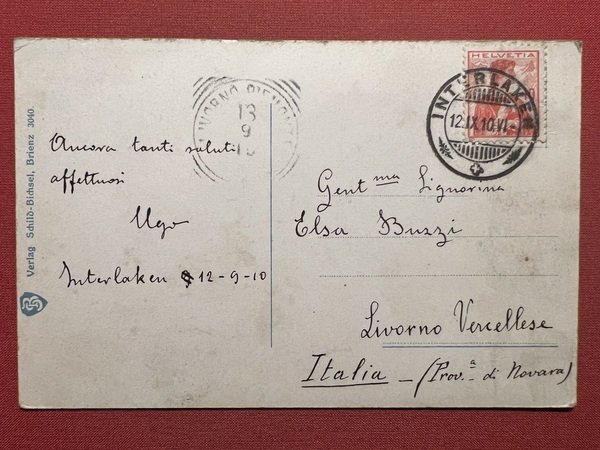 HELVETIA
INTERLAKEN
12.IX.10.VI
LIVORNO PIEMONTE
13
9
10
Verlag Schild-Bichsel, Brienz 3040.
Ancora tanti saluti
affettuosi
Ugo
Interlaken 12-9-10
Gent ma Signorina
Elsa Buzzi
Livorno Vercellese
Italia - (Prov.a di Novara)